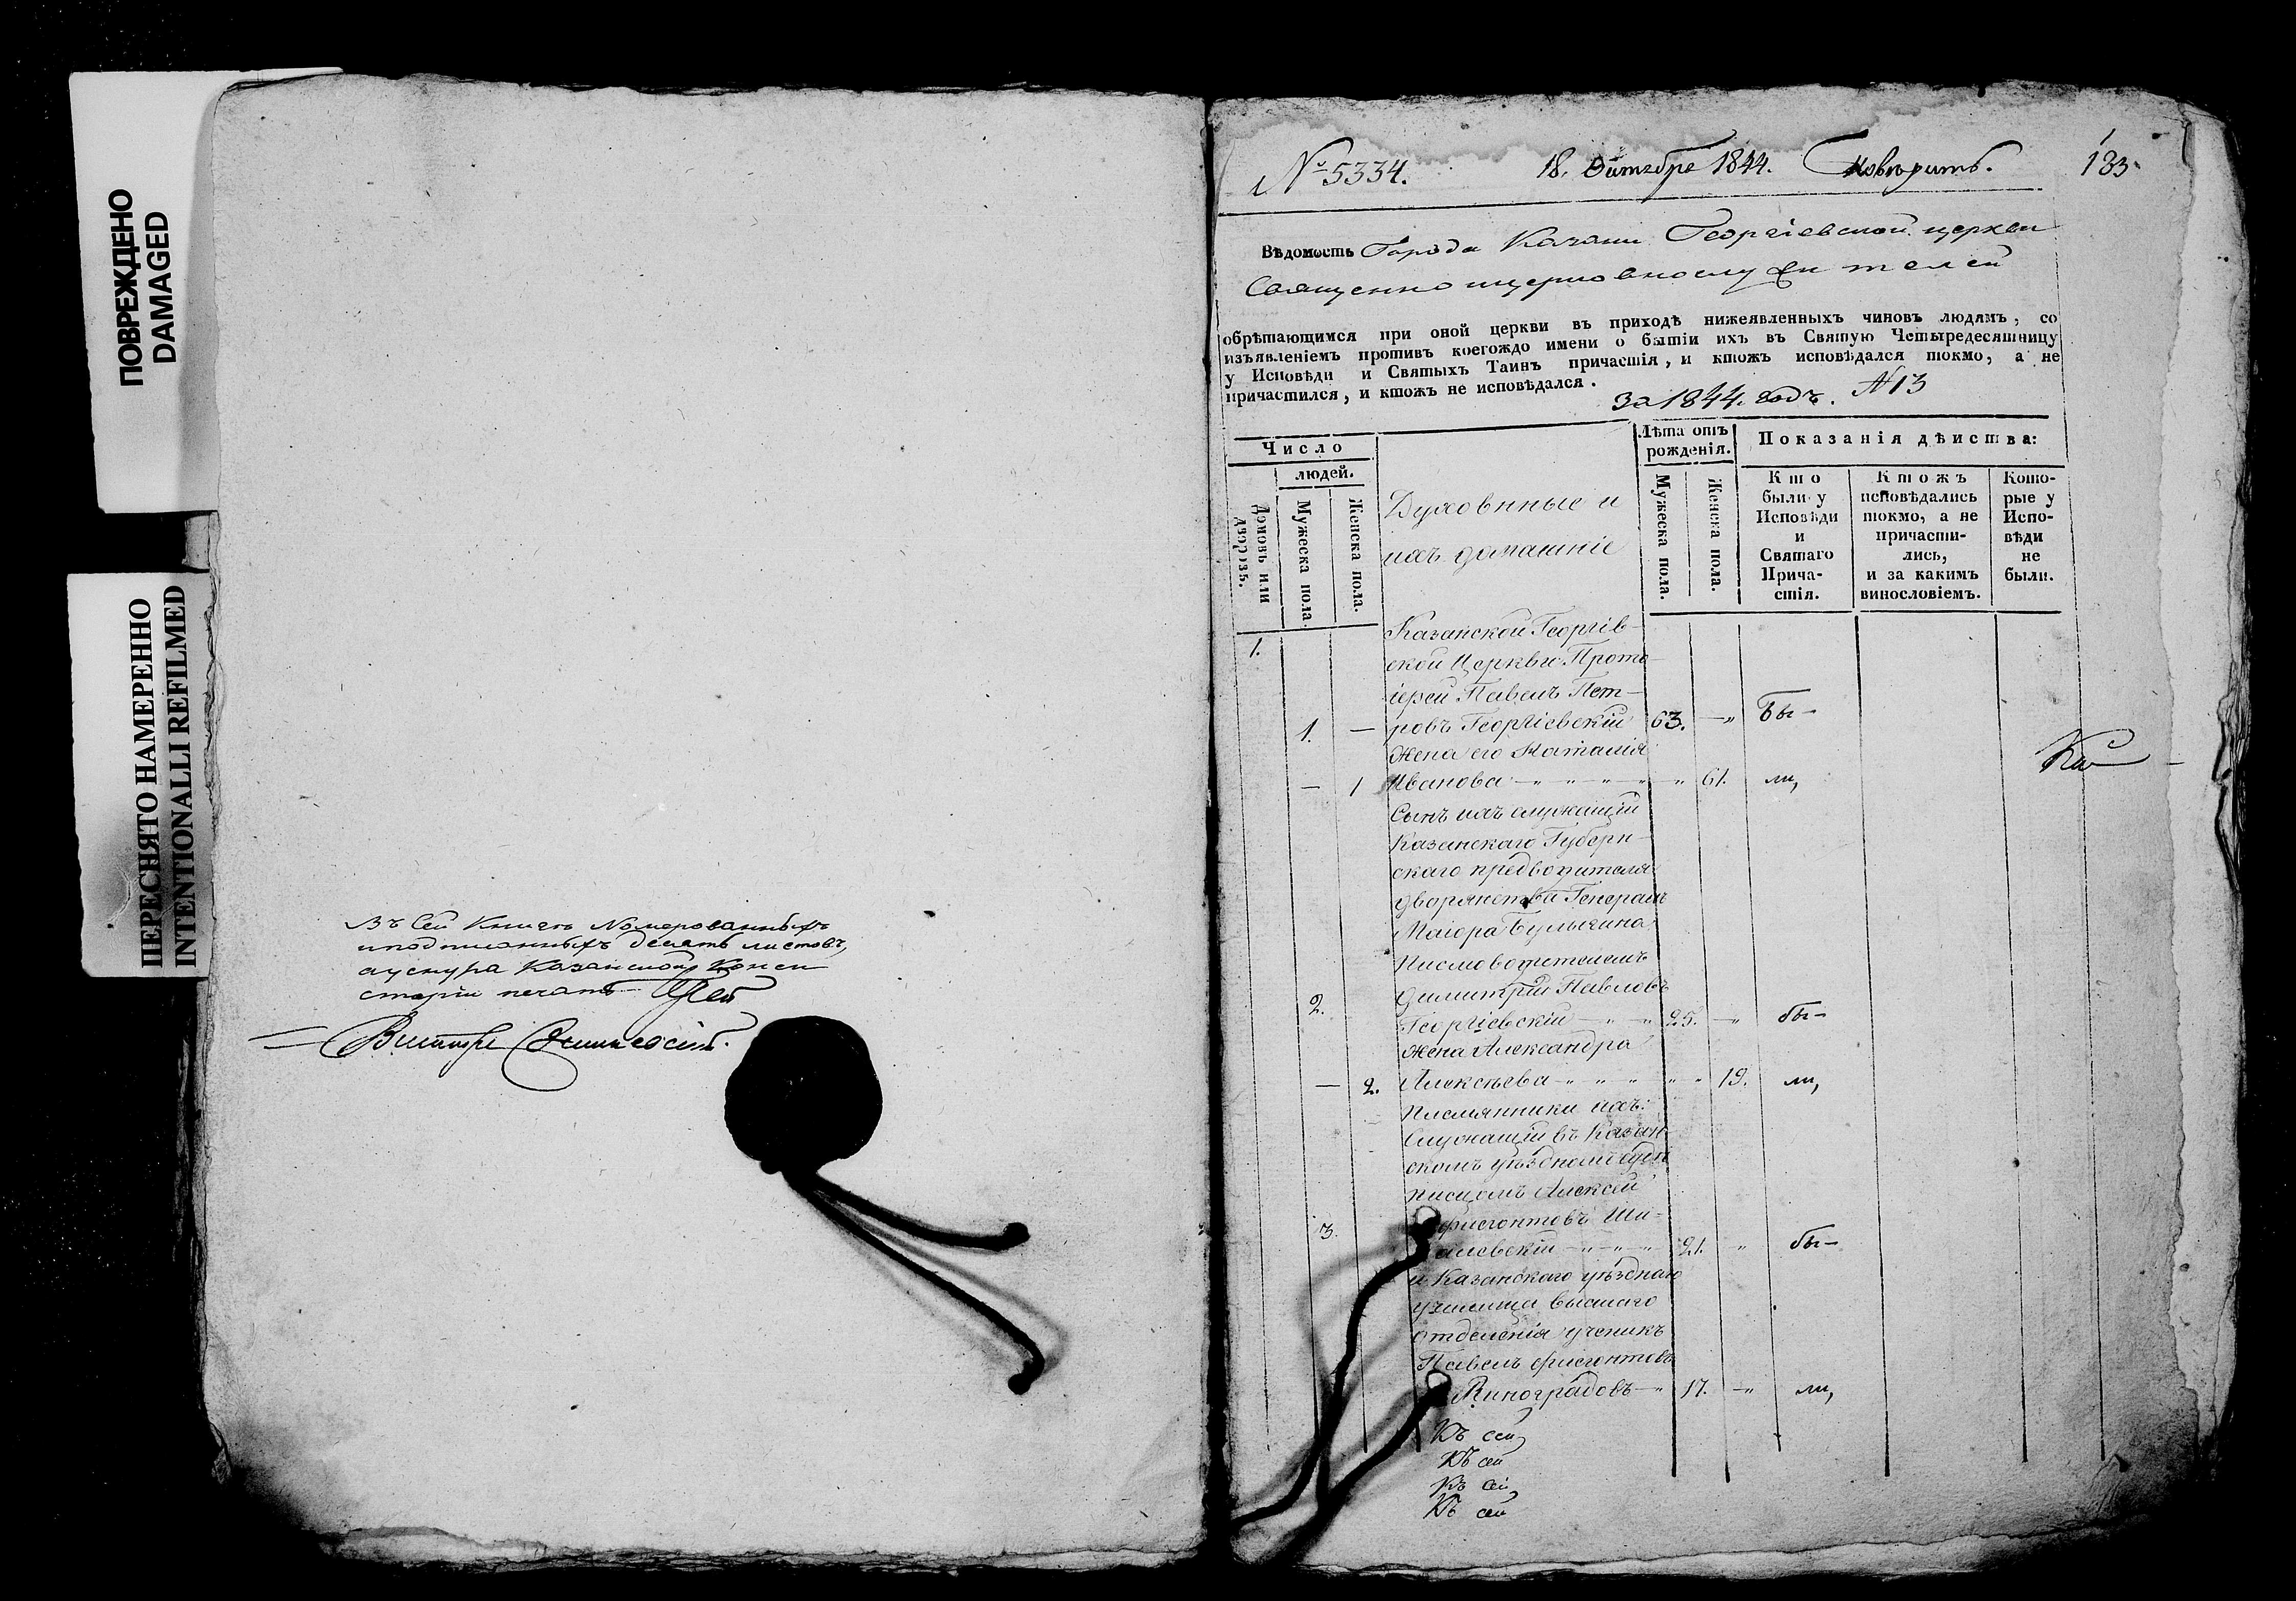 ПОВРЕЖДЕНО
DAMAGED
ПЕРЕСНЯТО НАМЕРЕННО
INTENTIONALLI REFILMED
Въ Сей Книге Номерованныхъ
иподписанныхъ десять листовъ,
Казанской Конси
сторіи печать
№ 5334.
18. Октября 1844.
183
Вѣдомость Города Казани Георгіевской церкви
Священноцерковнослужителей
обрѣтающимся при оной церкви въ приходѣ нижеявленныхъ чиновъ людямъ, со
изъявленіемъ противъ коегождо имени о бытіи ихъ въ Святую Четыредесятницу
у Исповѣди и Святыхъ Таинъ причастія, и ктожъ исповѣдался токмо, а не
причастился, и ктожъ не исповѣдался.
За 1844. годъ. №13
Число
людей.
Домовъ или дворовъ.
Мужеска пола.
Женска пола.
Духовнные и
ихъ домашніе
Лѣта отъ
рожденія.
Мужеска пола.
Женска пола.
Показанія дѣиства:
Кто
были у
Исповѣди
и
Святаго
Прича-
стія.
Ктожъ
исповѣдались
токмо, а не
причасти-
лись,
и за какимъ
винословіемъ.
Кото-
рые у
Испо-
вѣди
не
были.
1.
Казанской Георгіев-
ской Церкви Прото-
іерей Павелъ Пет-
1. — ровъ Георгіевскій 63. —„ Бы-
Жена его Наталія
— 1 Иванова 61. ли,
Сынъ ихъ служащій
Казанскаго Губерн-
скаго предводителя
дворянства Генералъ
Маіора Булыгина
Писмоводителемъ
Димитрій Павловъ
2. Георгіевскій 25. бы-
Жена Александра
— 2. Алексѣева 19. ли,
Племянники ихъ:
Служащій въ Казан-
скомъ уѣздномъ судѣ
писцомъ Алексѣй
3. Фисгонтовъ Ши-
21. бы-
и Казанскаго уѣзднаго
училища высшаго
отделенія ученикъ
Павелъ Фисгонтовъ
Виноградовъ 17. ли,
Къ сей
Къ сей
Къ сей
Къ сей